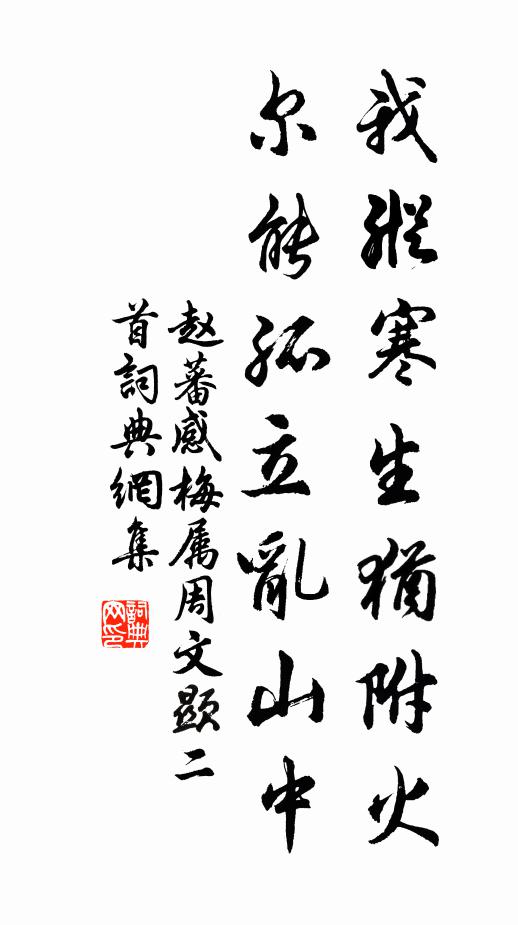 我縱寒生猶附火
尔能孤立亂山中
赵蕃感梅属周文顯二
首詞典網集
詞典
网印